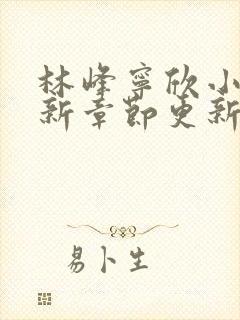 林峰寧欣小
新章節更新
易卜生